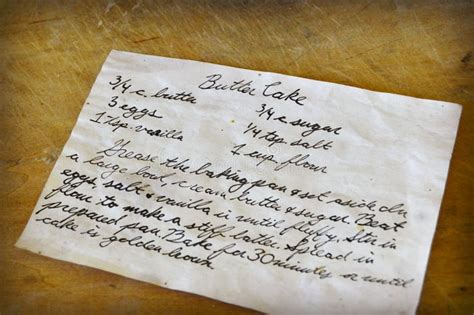 Butter Cake
3/4 c. butter 3/4 c sugar
3 eggs 1/4 tsp salt
1 tsp. vanilla 1 cup flour
Grease the baking pan & set aside. In
a large bowl, cream butter & sugar. Beat
eggs, salt & vanilla in until fluffy. Stir in
flour to make a stiff batter. Spread in
prepared pan. Bake for 30 minutes or until
cake is golden brown